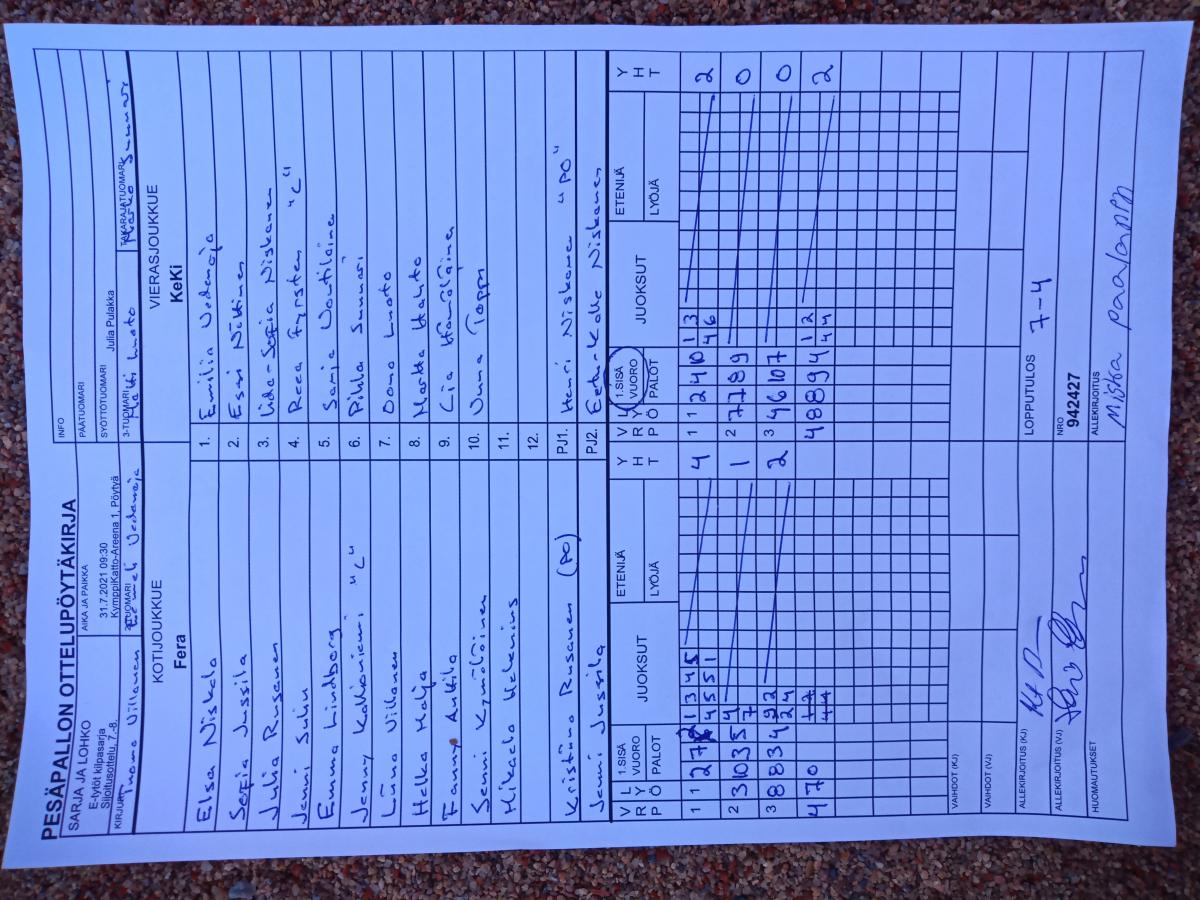 PESÄPALLON OTTELUPÖYTÄKIRJA
SARJA JA LOHKO
E-tytöt kilpasarja
Sijoitusottelu, 7.-8.
AIKA JA PAIKKA
31.7.2021 09:30
KymppiKatto-Areena 1, Pöytyä
INFO
PÄÄTUOMARI
SYÖTTÖTUOMARI Julia Pulakka
KIRJURI Tuomo Villanen
2-TUOMARI
3-TUOMARI Matti Luoto
TAKARAJATUOMARI Marko Summari
KOTIJOUKKUE
Fera
VIERASJOUKKUE
KeKi
Elsa Niskala 1. Emilia Uedenoja
Sofia Jussila 2. Essi Nittinen
Julia Rusanen 3. Iida-Sofia Niskanen
Jenni Salin 4. Reea Fyrsten "C"
Emma Lindberg 5. Sami Voutilaine
Jenny Kalhoniemi "C" 6. Pihla Summari
Liina Villanen 7. Oona Luoto
Helka Halja 8. Martta Hahto
Fanny Anttila 9. Lia Hämäläine
Senni Kymäläinen 10. Unna Toppi
Mikaela Helenins 11.
12.
Kristiina Rusanen (PO) PJ1. Henri Niskanen "PO"
Jenni Jussila PJ2. Eetu-Kalle Niskanen
V R P L Y Ö 1.SISÄ VUORO PALOT JUOKSUT ETENIJÄ LYÖJÄ Y H T V R P L Y Ö 1.SISÄ VUORO PALOT JUOKSUT ETENIJÄ LYÖJÄ Y H T
1 1 2 7 1 3 4 5 4 1 1 2 4 10 1 3 2
4 5 5 1 4 6
2 3 10 3 5 4 1 2 7 7 8 9 0
7
3 8 8 3 4 9 2 2 3 4 6 10 7 0
2 4
4 7 0 1 2 4 8 8 9 4 1 2 2
4 4 4 4
VAIHDOT (KJ)
VAIHDOT (VJ)
LOPPUTULOS 7-4
ALLEKIRJOITUS (KJ)
ALLEKIRJOITUS (VJ)
NRO
942427
HUOMAUTUKSET
ALLEKIRJOITUS
Miska